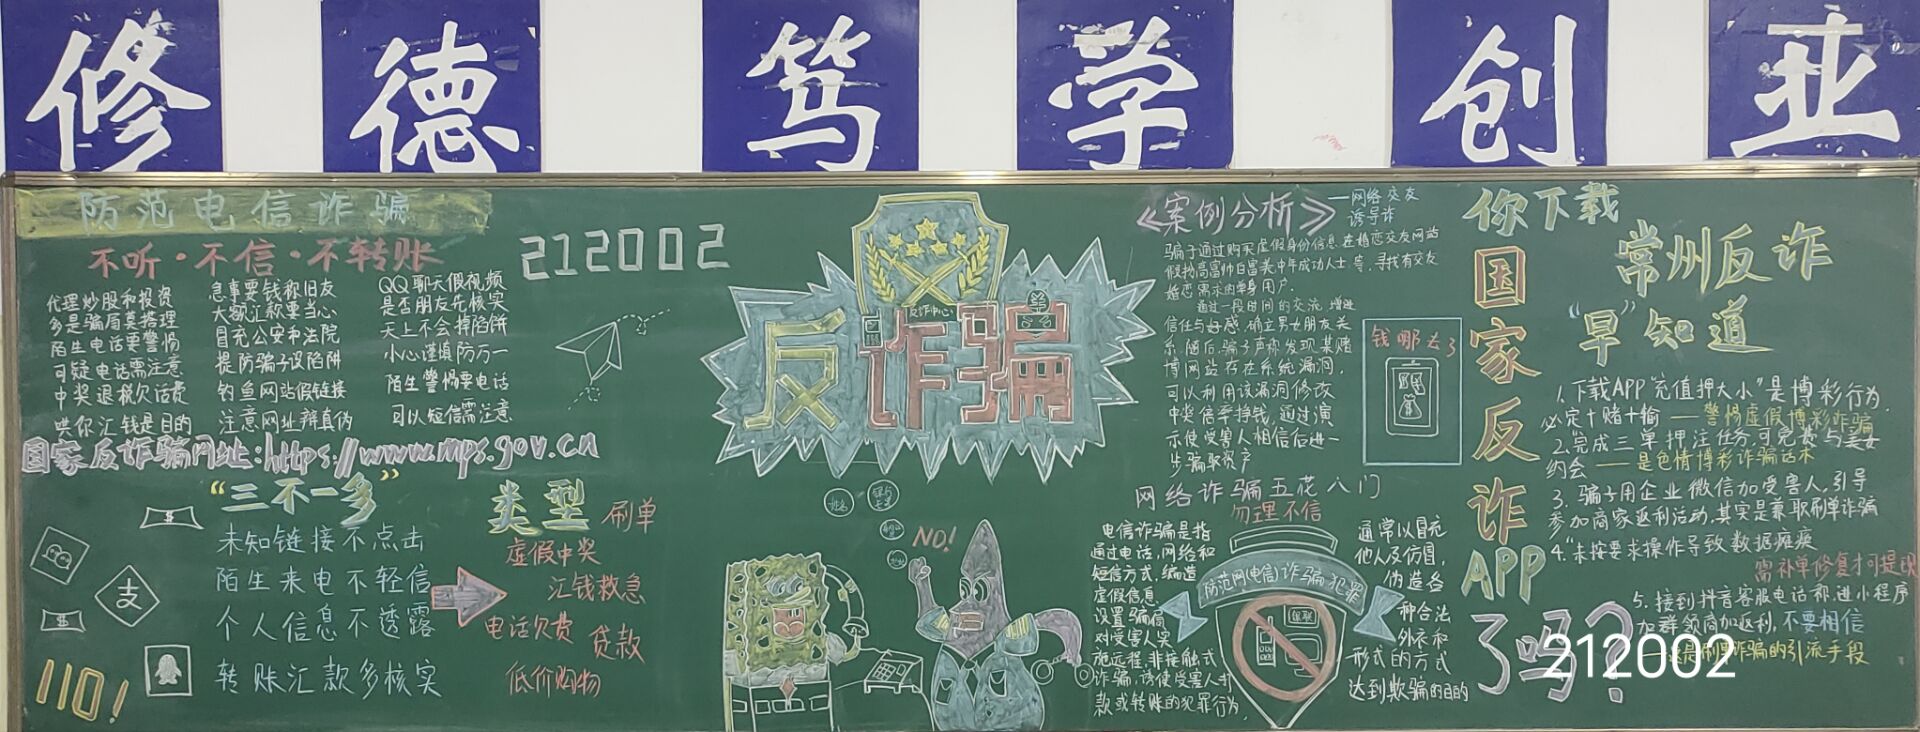 修德笃学创业
防范电信诈骗
不听·不信·不转账
代理炒股和投资
多是骗局莫搭理
陌生电话要警惕
可疑电话需注意
中奖退税欠话费
哄你汇钱是目的
急事要钱称旧友
大额汇款要当心
冒充公安和法院
提防骗子设陷阱
钓鱼网站假链接
注意网址辩真伪
QQ聊天假视频
是否朋友先核实
天上不会掉陷饼
小心谨慎防万一
陌生警惕要电话
可以短信需注意
国家反诈骗网址:https://www.mps.gov.cn
“三不一多”
未知链接不点击
陌生来电不轻信
个人信息不透露
转账汇款多核实
支
110!
类型
刷单
虚假中奖
汇钱救急
电话欠费
贷款
低价购物
212002
反诈中心
反诈骗
NO!
《案例分析》
—网络交友
诱导诈
骗子通过购买虚假身份信息在婚恋交友网站
假扮高富帅白富美中年成功人士等,寻找有交友
婚恋需求的单身用户.
通过一段时间的交流,增进
信任与好感,确立男女朋友关
系,随后,骗子声称发现某赌
博网站存在系统漏洞,
可以利用该漏洞修改
中奖倍率挣钱,通过演
示使受害人相信后进一
步骗取资产
钱哪去了
网络诈骗五花八门
勿理不信
电信诈骗是指
通过电话,网络和
短信方式,编造
虚假信息,
设置骗局,
对受害人实
施远程,非接触式
诈骗,诱使受害人打
款或转账的犯罪行为,
防范网(电信)诈骗犯罪
通常以冒充
他人及仿冒,
伪造各
种合法
外衣和
形式的方式
达到欺骗的目的
你下载
国家反诈APP
了吗?
常州反诈
“早”知道
1.下载APP“充值押大小”是博彩行为.
必定十赌十输——警惕虚假博彩诈骗
2.完成三单押注任务,可免费与美女
约会——是色情博彩诈骗话术
3.骗子用企业微信加受害人,引导
参加商家返利活动,其实是兼职刷单诈骗
4.“未按要求操作导致数据瘫痪
需补单修复才可提现
5.接到抖音客服电话称,进小程序
加群领商加返利,不要相信
这是刷单诈骗的引流手段
212002